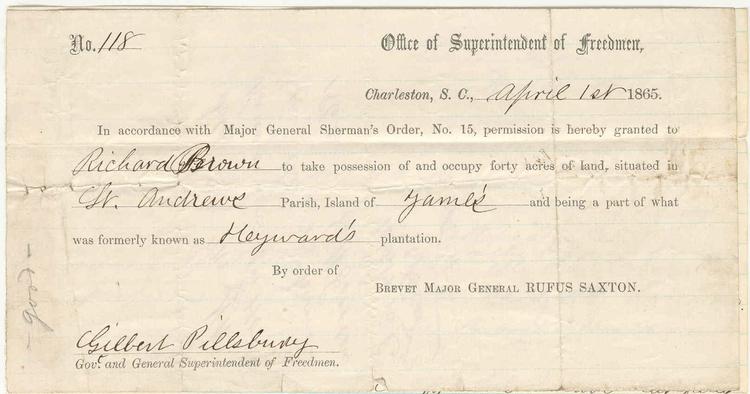 No. 118 Office of Superintendent of Freedmen,
Charleston, S. C., April 1st 1865.
In accordance with Major General Sherman's Order, No. 15, permission is hereby granted to
Richard Brown to take possession of and occupy forty acres of land, situated in
St. Andrews Parish, Island of James and being a part of what
was formerly known as Heyward's plantation.
By order of
Brevet Major General RUFUS SAXTON.
Gilbert Pillsbury
Gov't and General Superintendent of Freedmen.